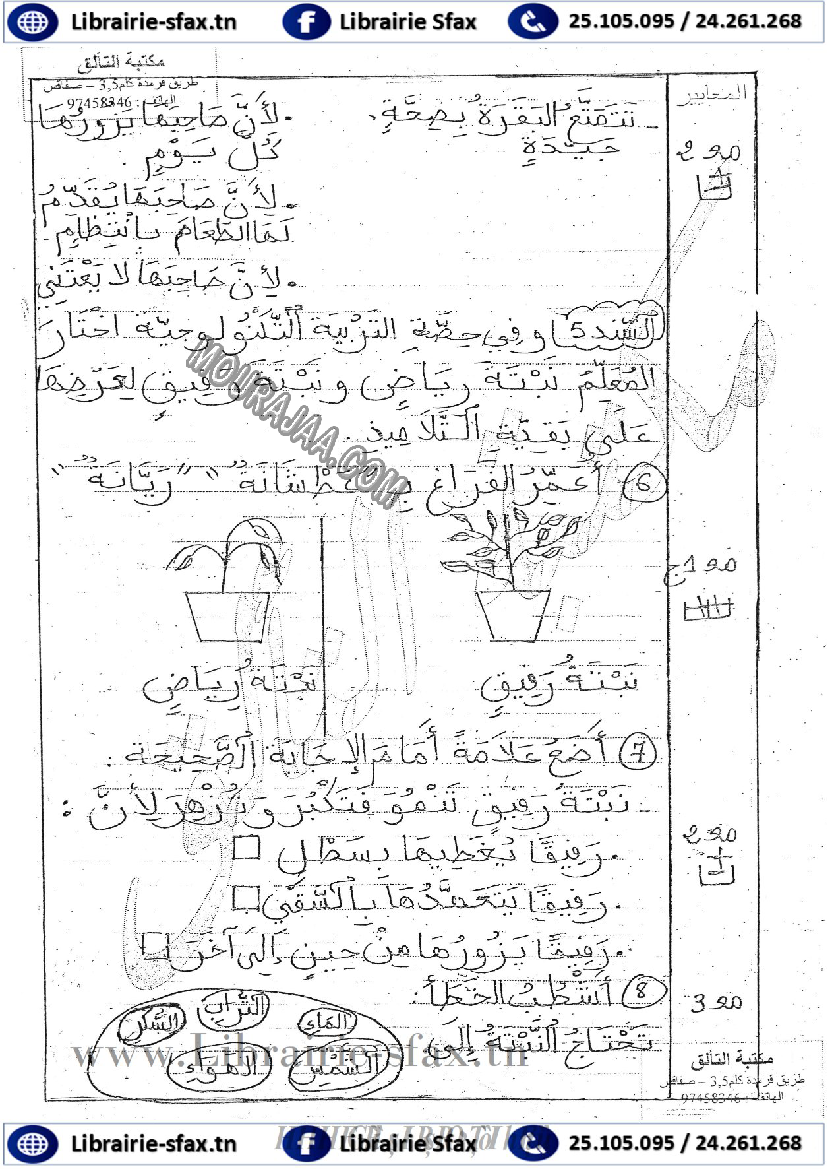 Librairie-sfax.tn Librairie Sfax 25.105.095 / 24.261.268
مكتبة التألق
طريق قرمدة كلم 3,5 – صفاقس
الهاتف : 97458346
المعايير
ـ تَتَمَتَّعُ البَقَرَةُ بِصِحَّةٍ جَيِّدَةٍ
. لِأَنَّ صَاحِبَهَا يَزُورُهَا
كُلَّ يَوْمٍ .
. لِأَنَّ صَاحِبَهَا يُقَدِّمُ
لَهَا الطَّعَامَ بِانْتِظَامٍ .
. لِأَنَّ صَاحِبَهَا لَا يَعْتَنِي
مع 2
السّند 5 وفِي حِصَّةِ التَرْبِيَةِ التِّكْنُولُوجِيَّة اخْتَارَ
المُعَلِّمُ نَبْتَةَ رِيَاضٍ ونَبْتَةَ رَفِيقٍ لِعَرْضِهَا
عَلَى بَقِيَّةِ التَّلَامِيذ .
MOURAJAA.COM
6 أُعَمِّرُ الفَرَاغَ بِـ "عَطْشَانَةٌ" "رَيَّانَةٌ"
مع 1 ج
نَبْتَةُ رَفِيقٍ نَبْتَةُ رِيَاضٍ
7 أَضَعُ عَلَامَةً أَمَامَ الإِجَابَةِ الصَّحِيحَة :
ـ نَبْتَةُ رَفِيقٍ تَنْمُو فَتَكْبُرَ وَتُزْهِرَ لِأَنَّ :
مع 2
. رَفِيقًا يُغَطِّيهَا بِسَطْلٍ
. رَفِيقًا يَتَعَهَّدُهَا بِالسَّقْيِ
. رَفِيقًا يَزُورُهَا مِنْ حِينٍ إِلَى آخَرَ
8 أَشْطُبُ الخَطَأَ :
مع 3
تَحْتَاجُ النَّبْتَةُ إِلَى
المَاءِ التُّرَابِ السُّكَّرِ
الشَّمْسِ الهَوَاءِ
www.Librairie-sfax.tn
مكتبة التألق
طريق قرمدة كلم 3,5 – صفاقس
الهاتف : 97458346
Librairie-sfax.tn Librairie Sfax 25.105.095 / 24.261.268